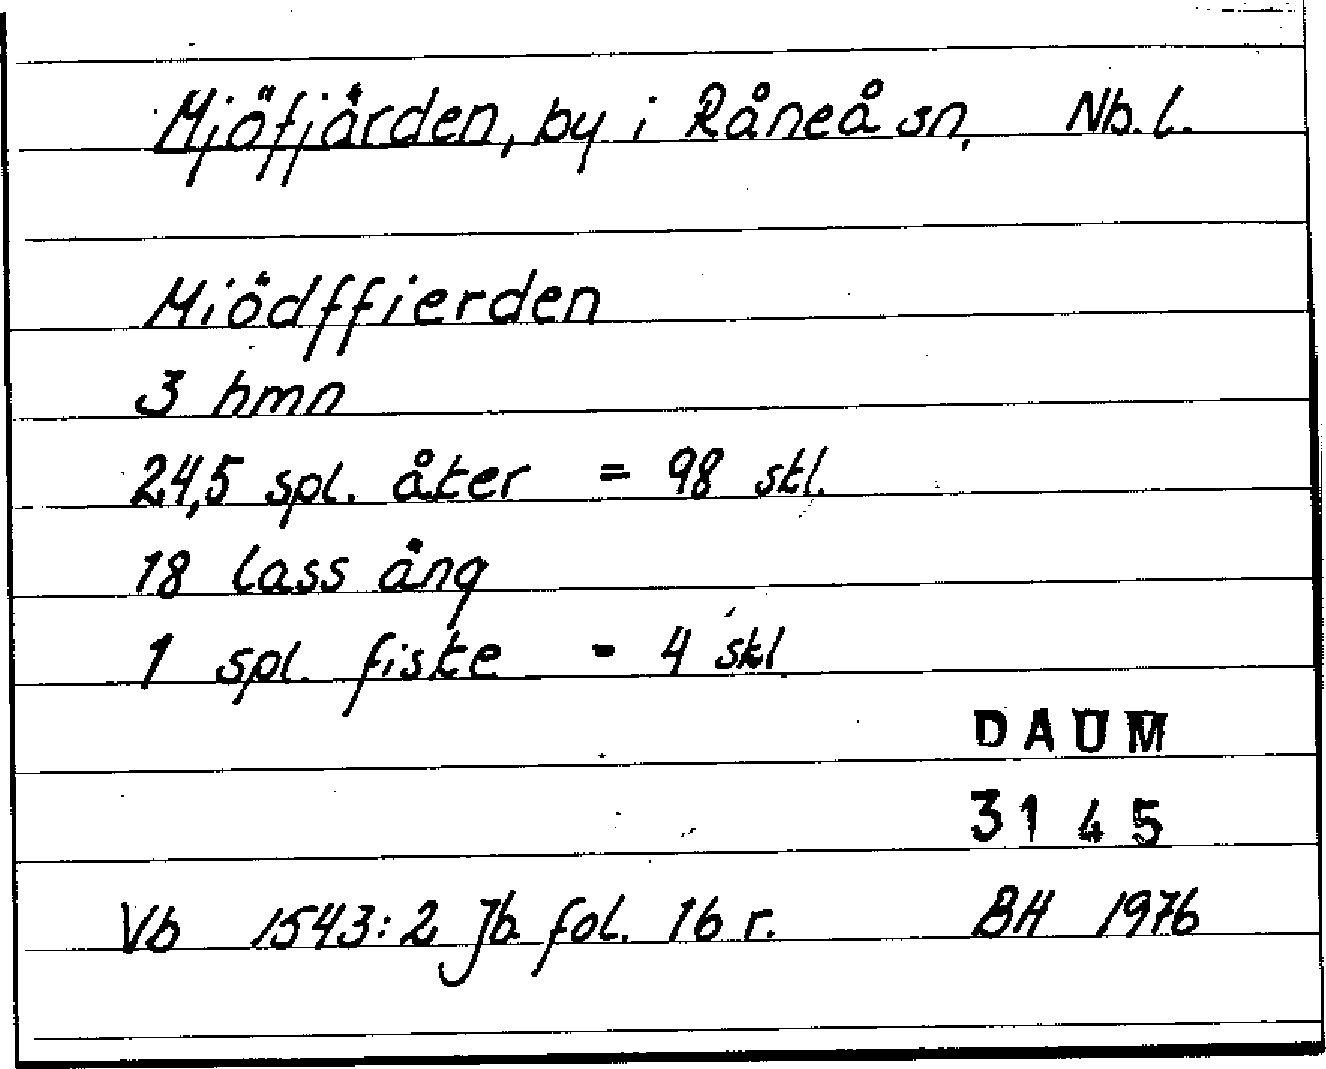 Mjöfjärden, by i Råneå sn, Nb. l.
Miödffierden
3 hmn
24,5 spl. åker = 98 skl.
18 lass äng
1 spl. fiske - 4 skl
DAUM
3145
Vb 1543:2 Jb fol. 16 r. BH 1976